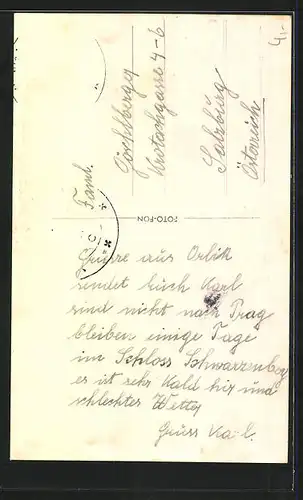 4,-
Faml.
Göschlberger
gasse 4-6
Salzburg
Österreich
FOTO-FON
Grüsse aus Orlik
sendet Euch Karl
sind nicht nach Prag
bleiben einige Tage
im Schloss Schwarzenberg
es ist sehr Kald hir und
schlechter Wetter
Gruss Karl.